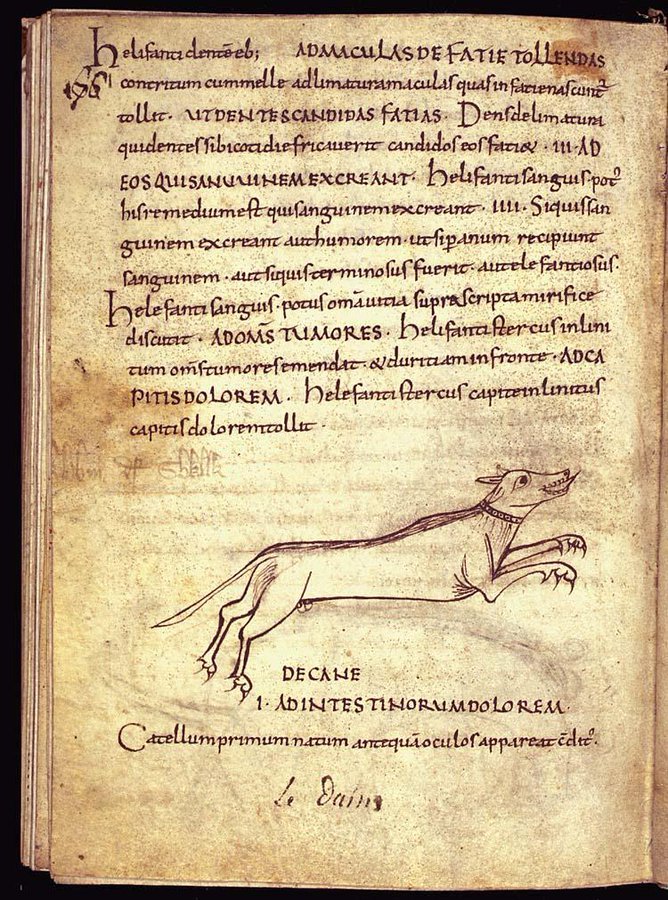 Helifanti dentē eb; AD MACULAS DE FATIE TOLLENDAS
contritum cum melle ad limatura maculas quas in fatie nascunt̄
tollit · UT DENTES CANDIDAS FATIAS · Dens de limatura
qui dentes sibi cotidie fricaverit candidos eos fati& · III · AD
EOS QUI SANUINEM EXCREANT · Helifanti sanguis pot᷒
his remedium est qui sanguinem excreant · IIII · Si quis san
guinem excreant aut humorem · ut si panum recipiunt
sanguinem · aut si quis terminosus fuerit · aut elefantiosus ·
Helefanti sanguis · potus omā vitia suprascripta mirifice
discutit · AD OMS̄ TUMORES · Helifanti stercus inlini
tum om̄s tumores emendat · & duritiam in fronte · AD CA
PITIS DOLOREM · Helefanti stercus capite inlinitus
capitis dolorem tollit
DE CANE
I · AD INTESTINORUM DOLOREM ·
Catellum primum natum antequā oculos appareat c̄dit᷒ ·
Le Daim